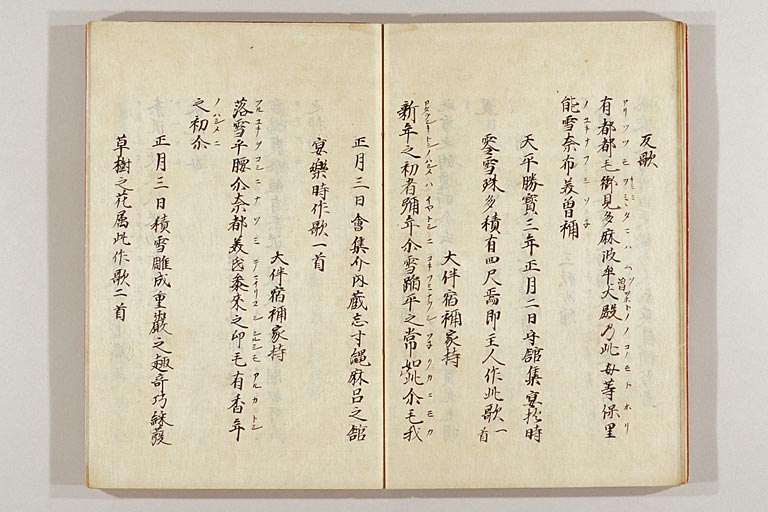 反歌
有都都毛御見多麻波牟曽大殿乃此母等保里
能雪奈布美曽祢
天平勝寳三年正月二日守舘集宴於時
零雪殊多積有四尺焉即主人作此歌一首
大伴宿祢家持
新年之初者弥年介雪踏平之常如此介毛我
正月三日會集介内蔵忌寸縄麻呂之舘
宴樂時作歌一首
大伴宿祢家持
落雪乎腰介奈都美弖参来之印毛有香年
之初介
正月三日積雪雕成重巖之趣奇巧綵發
草樹之花属此作歌二首